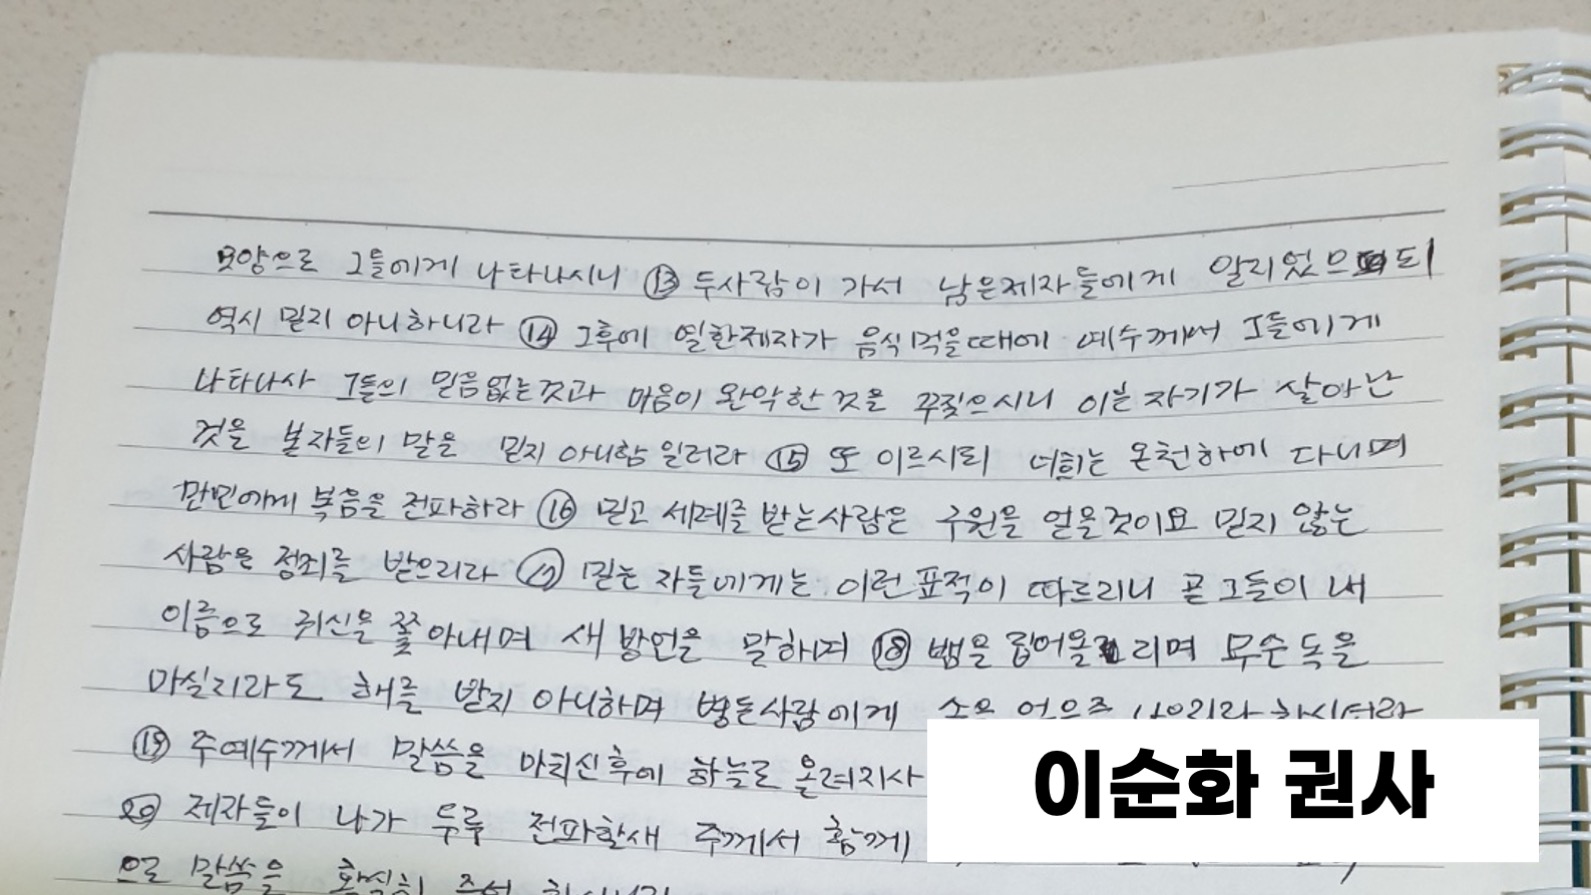 모양으로 그들에게 나타나시니 ⑬ 두사람이 가서 남은제자들에게 알리었으되
역시 믿지 아니하니라 ⑭ 그후에 열한제자가 음식먹을때에 예수께서 그들에게
나타나사 그들의 믿음없는것과 마음이 완악한것을 꾸짖으시니 이는 자기가 살아난
것을 본자들의 말을 믿지 아니함일러라 ⑮ 또 이르시되 너희는 온천하에 다니며
만민에게 복음을 전파하라 ⑯ 믿고 세례를 받는사람은 구원을 얻을것이요 믿지 않는
사람은 정죄를 받으리라 ⑰ 믿는 자들에게는 이런 표적이 따르리니 곧 그들이 내
이름으로 귀신을 쫓아내며 새 방언을 말하며 ⑱ 뱀을 집어올리며 무슨독을
마실지라도 해를 받지 아니하며 병든사람에게
⑲ 주예수께서 말씀을 마치신후에 하늘로 올려지사
⑳ 제자들이 나가 두루 전파할새 주께서 함께
으로 말씀을
이순화 권사